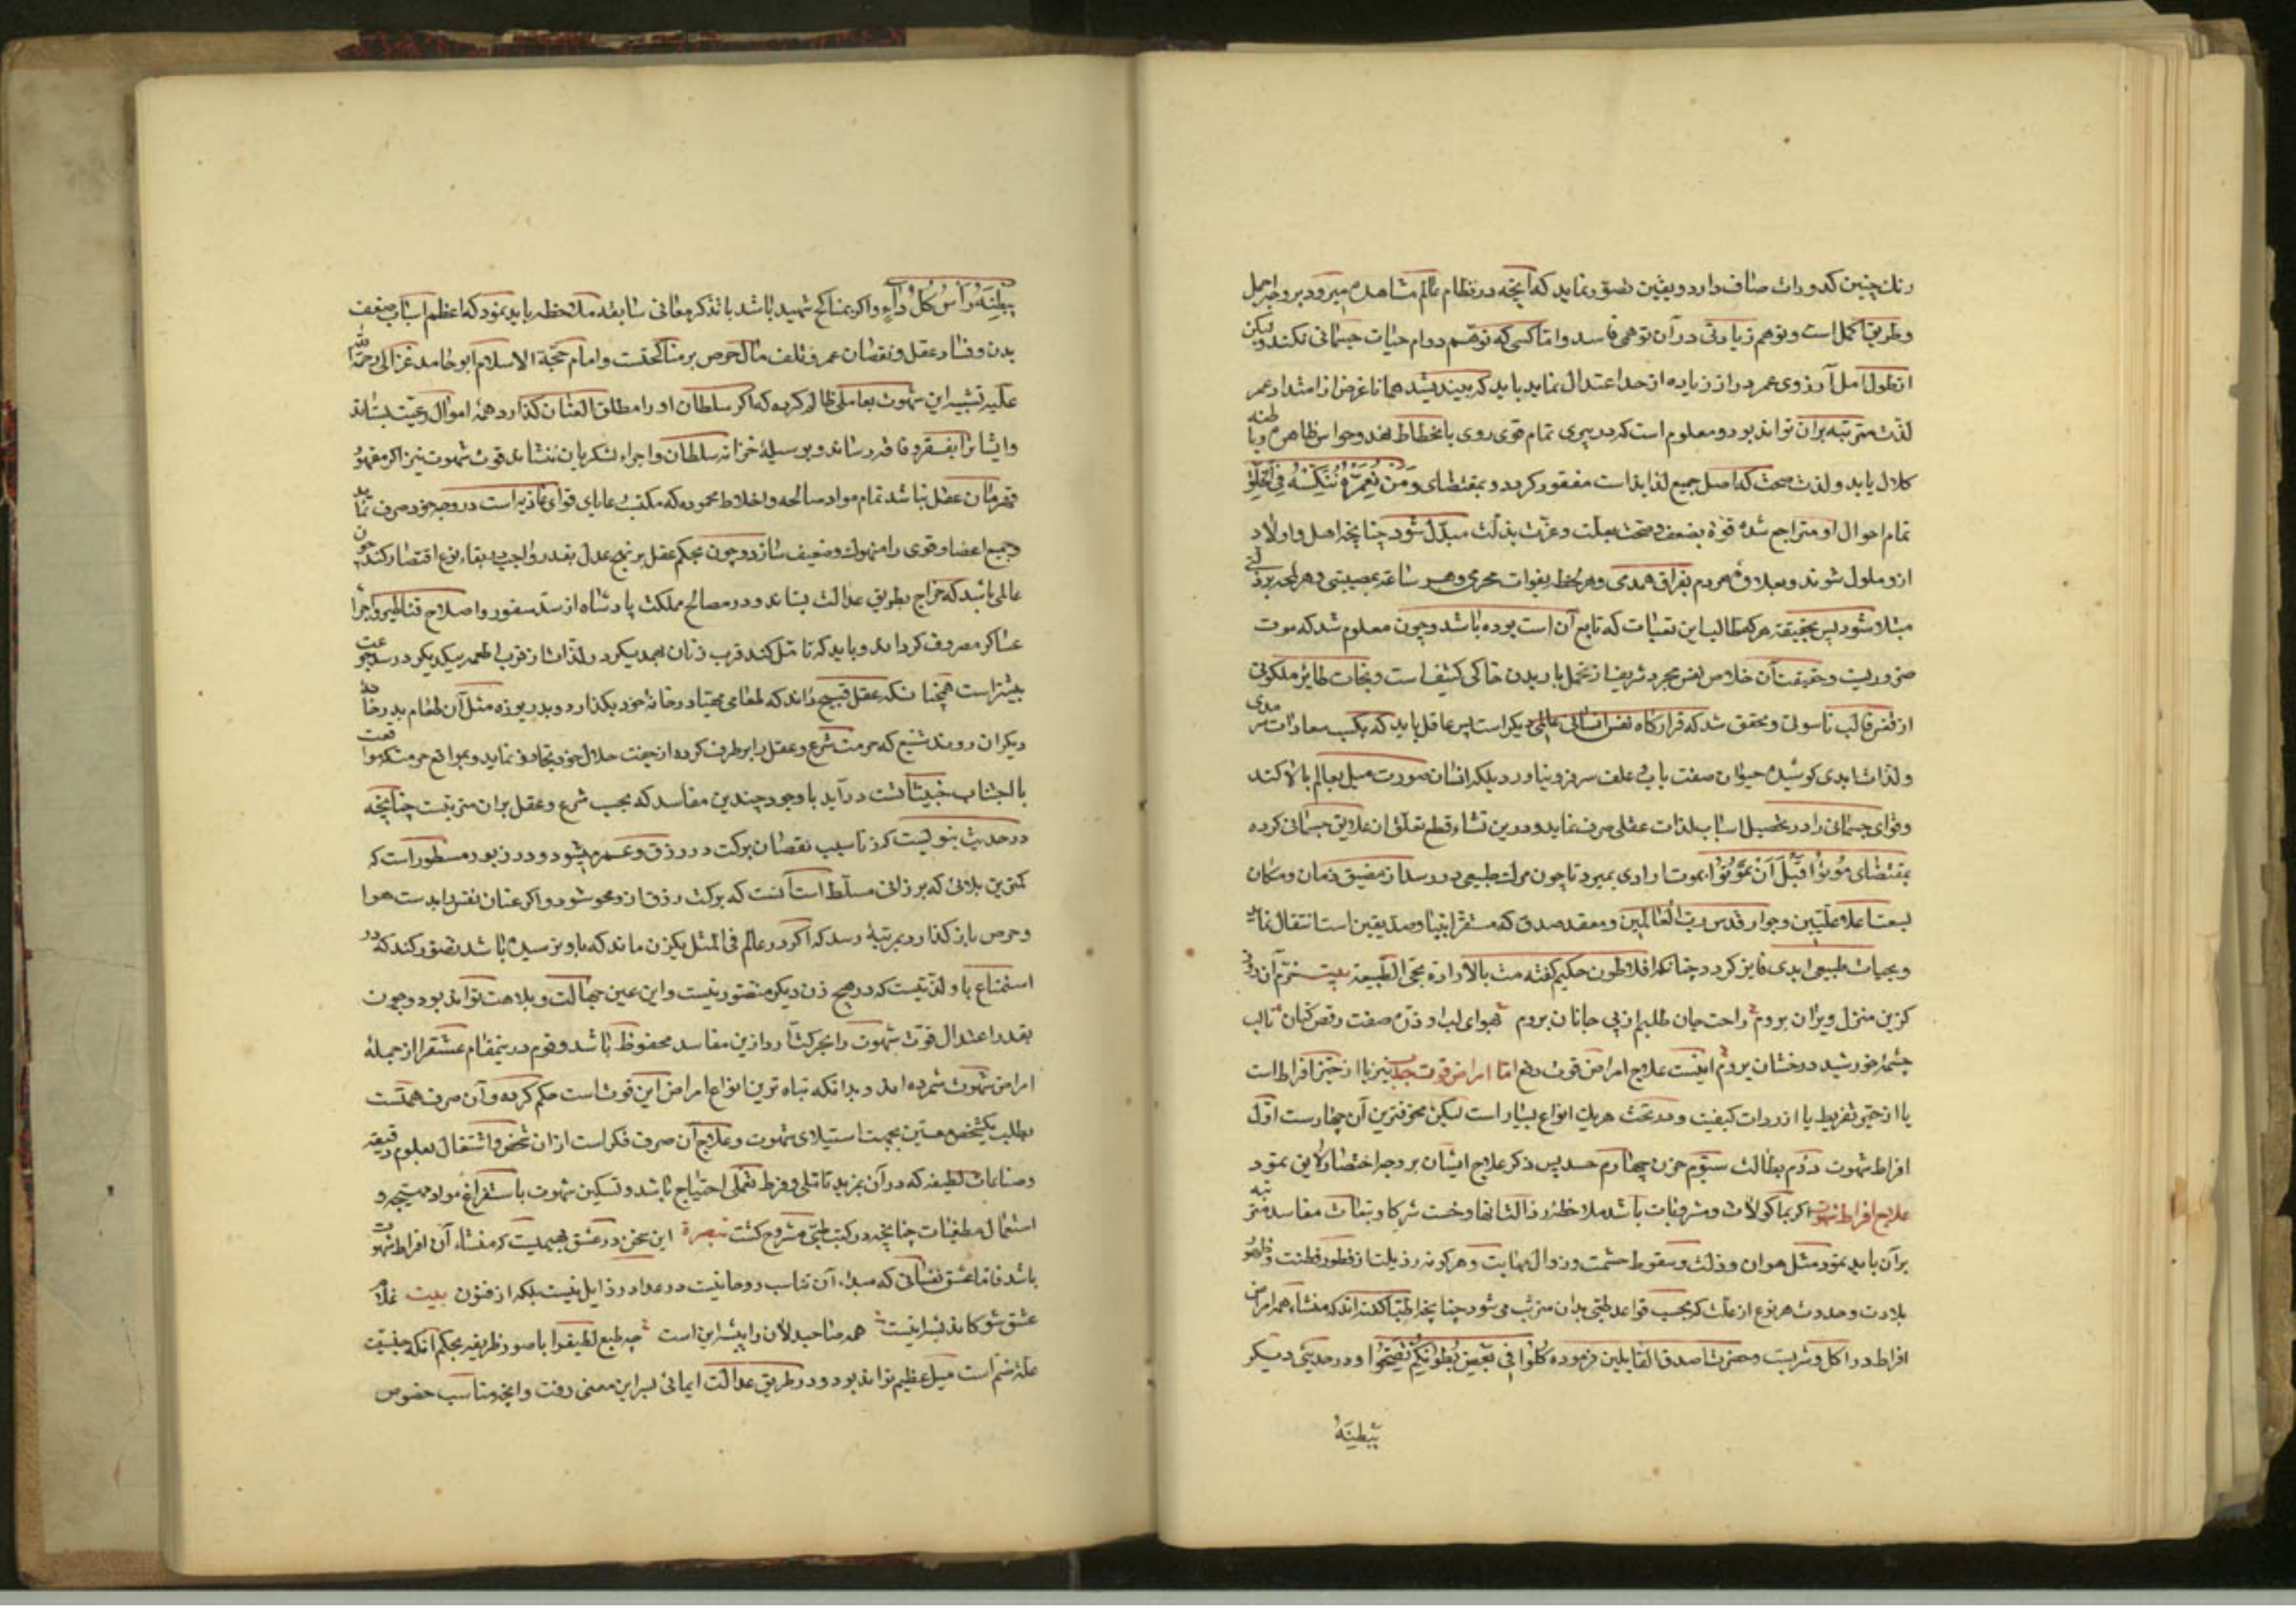 رنك چنین كدورات صاف دارد و یقین تصور نماید كه آنچه در نظام عالم مشاهده میرود بر وجه اجمل
و طریق اكمل است و توهم زیادتی در آن توهمی فاسد و اما كسی كه توهم دوام حیات جسمانی نكند ولیكن
از طول امل آرزوی عمر دراز زیاده از حد اعتدال نماید باید كه بیندیشد همانا غرض از امتداد عمر
لذت مترتبه بران تواند بود و معلوم است كه در پیری تمام قوی روی بانحطاط نهد و حواس ظاهره و باطنه
كلال یابد و لذت صحت كه اصل جمیع لذایذ است مفقود كردد و بمقتضای وَمَنْ نُعَمِّرْهُ نُنَكِّسْهُ فِي الْخَلْقِ
تمام احوال او متراجع شده قوة بضعف و صحت بعلت و عزت بذلت مبدل شود چنانچه اهل و اولاد
ازو ملول شوند و بعلاوه هر دم بفراق همدمی و هر لحظه بفوات محرمی و هر ساعة بمصیبتی و هر لمحه برزیتی
مبتلا شود پس بحقیقة هر كه طالب این تعبات كه تابع آن است بوده باشد و چون معلوم شد كه موت
ضروریست و حقیقت آن خلاص نفس مجرد شریف از تحمل بار بدن خاكی كثیف است و نجات طایر ملكوتی
از قفس قالب ناسوتی و محقق شد كه قراركاه نفس انسانی عالمی دیكر است پس عاقل باید كه بكسب سعادات سرمدی
و لذات ابدی كوشیده حیوان صفت باب و علف سر فرو نیاورد بلكه انسان صورت میل بعالم بالا كند
و قوای جسمانی را در تحصیل اسباب لذات عقلی صرف نماید و درین نشاء قطع تعلق ازعلایق جسمانی كرده
بمقتضای مُوتُوا قَبْلَ أَنْ تَمُوتُوا بموت ارادی بمیرد تا چون مرك طبیعی در رسد از مضیق زمان و مكان
بسعت اعلا علیین و جوار قدس رب العالمین و مقعد صدق كه مستقر انبیا و صدیقین است انتقال نماید
و بحیات طبیعی ابدی فایز كردد چنانكه افلاطون حكیم كفته مت بالارادة تحی بالطبیعة بیت خرم آن روز
كزین منزل ویران بروم راحت جان طلبم از پی جانان بروم بهوای لب او ذره صفت رقص كنان تا لب
چشمهٔ خورشید درخشان بروم اینست علاج امراض قوت دفع اما امراض قوت جذب نیز یا از حیز افراط است
یا از حیز تفریط یا از ردات كیفیت و در تحت هر یك انواع بسیار است لیكن مخوفترین آن چهارست اول
افراط شهوت دوم بطالت سیوم حزن چهارم حسد پس ذكر علاج ایشان بر وجه اختصار لایق نمود
علاج افراط شهوت اكر بماكولات و مشروبات باشد ملاحظه رذالت انها و خست شركا و تبعات مفاسد مترتبه
برآن باید نمود مثل هوان و ذلت و سقوط حشمت و زوال مهابت و هر كونه رذیلت از فطور فطنت و ظهور
بلادت و حدوث هر نوع از علت كه بحسب قواعد طبی بدان مترتب می شود چنانچه اطبا كفته اند كه منشاء همه امراض
افراط در اكل و شربست و حضرت اصدق القایلین فرموده كُلُوا فِي بَعْضِ بُطُونِكُمْ تَصِحُّوا و در حدیثی دیكر
بِبَطْنَةُ
بِبَطْنَةُ رَأْسُ كُلِّ دَاءٍ و اكر بمناكح شهید باشد با تذكر معانی سابقه ملاحظه باید نمود كه اعظم اسباب ضعف
بدن و فساد عقل و نقصان عمر و تلف مال حرص بر مناكحتست و امام حجة الاسلام ابو حامد غزالی رحمة الله
علیه تشبیه این شهوت بعاملی ظالم كرده كه اكر سلطان او را مطلق العنان كذارد همهٔ اموال رعیت بستاند
و ایشانرا بفقر و فاقه رساند و بوسیلهٔ خزانه سلطان و اجراء لشكریان ننشاند قوت شهوت نیز اكر مقهور
قهرمان عقل نباشد تمام مواد صالحه و اخلاط محموده كه مكتسب رعایای قوای غاذیه است در وجه خود صرف نماید
و جمیع اعضا و قوی را منهوك و ضعیف سازد و چون بحكم عقل بر نهج عدل بقدر واجب در بقاء نوع اقتصار كند چون
عاملی باشد كه خراج بطریق عدالت بستاند و در مصالح مملكت پادشاه از سد ثغور و اصلاح قناطیر و اجرا
عساكر مصروف كرداند و باید كه تامل كند قرب زنان بهمدیكر در لذات از قرب اطعمه بیكدیكر در سد جوعت
بیشتر است همچنانكه عقل قبیح داند كه طعامی مهیا در خانهٔ خود بكذارد و بدریوزه مثل آن طعام بدر خانه
دیكران رود شنیع كه حرمت شرع و عقل را بر طرف كرده از جفت حلال خود تجاوز نماید و بمواقع حرمت مواقعت
با اجتناب خبیثاتست درآید با وجود چندین مفاسد كه بحسب شرع و عقل بران مترتبست چنانچه
در حدیث نبویست كه زنا سبب نقصان بركت در رزق و عمر میشود و در زبور مسطور است كه
كمترین بلائی كه بر زانی مسلط است آنست كه بركت رزق ازو محو شود و اكر عنان نفس را بدست هوا
و حرص باز كذارد بمرتبهٔ رسد كه اكر در عالم فی المثل یكزن ماند كه باو نرسیده باشد تصور كند كه در
استمتاع باو لذتیست كه در هیچ زن دیكر متصور نیست و این عین جهالت و بلاهت تواند بود و چون
بقدر اعتدال قوت شهوت را بحركت آرد ازین مفاسد محفوظ باشد و قوم درینمقام عشق را از جملهٔ
امراض شهوت شمرده اند و بدانكه تباه ترین انواع امراض این قوت است حكم كرده و آن صرف همتست
بطلب یكشخص معین بجهت استیلای شهوت و علاج آن صرف فكر است ازان شخص و اشتغال بعلوم دقیقه
و صناعات لطیفه كه درآن بمزید تاملی و فرط تعملی احتیاج باشد و تسكین شهوت باستفراغ مواد مهیجه و
استعمال مطفیات چنانچه در كتب طبی مشروح كشت تبصرة این سخن در عشق بهیمیست كه منشاء آن افراط شهوت
باشد فاما عشق نفسانی كه مبداء آن تناسب روحانیست در عداد رذایل نیست بلكه از فنون بیت غلام
عشق شو كاندیشه اینست همه صاحبدلان را پیشه این است چه طبع لطیف را با صور ظریفه بحكم آنكه جنسیت
علة ضم است میل عظیم تواند بود و در طریق عدالت ایمائی بسر این معنی رفت و آنچه مناسب خصوص